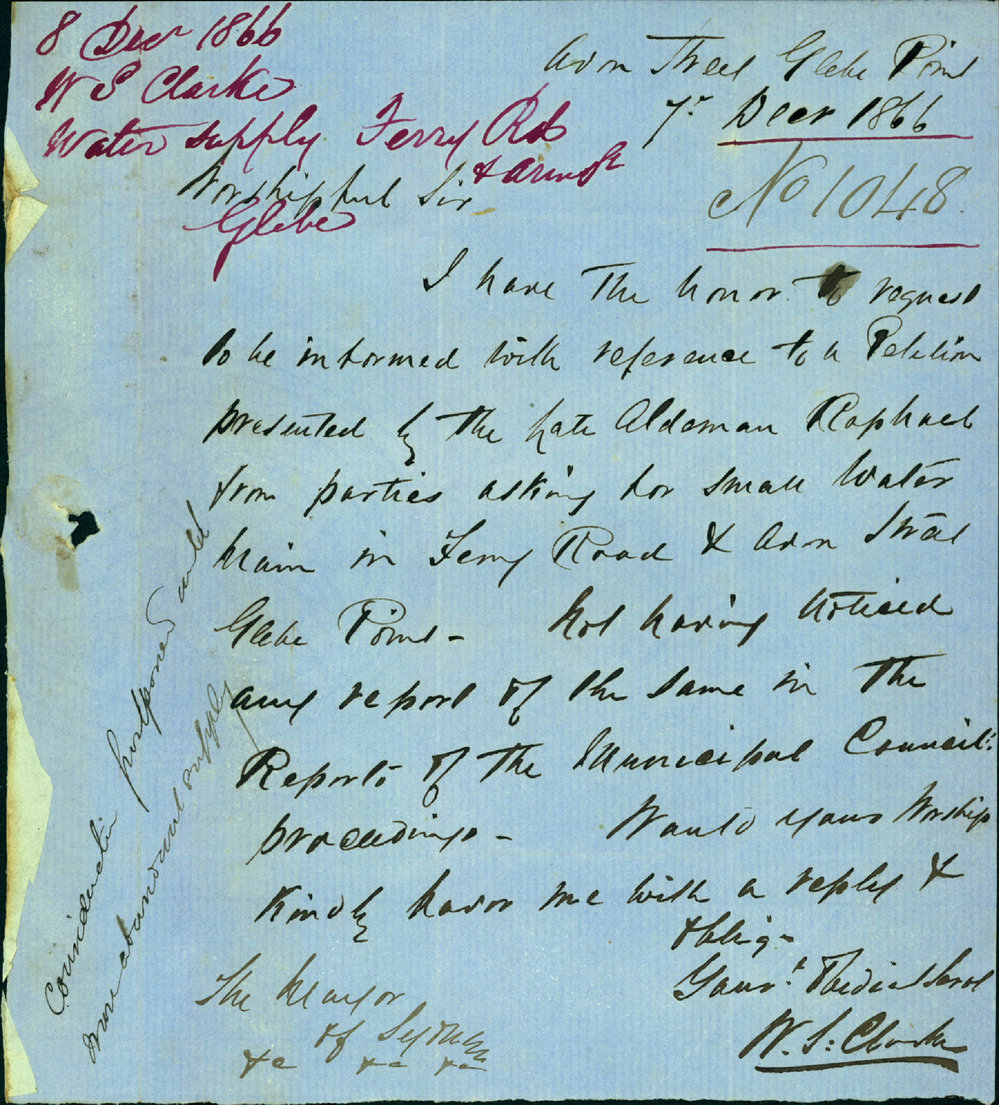 8 Decr 1866
W S Clarke
Water supply Ferry Rd
& Avon St
Glebe
Avon Street Glebe Point
7th Decr 1866
No 1048.
Worshipful Sir
I have the honor to request
to be informed with reference to a Petition
presented by the late Alderman Raphael
from parties asking for small Water
Main in Ferry Road & Avon Street
Glebe Point - Not having noticed
any report of the same in the
Reports of the Municipal Council
proceedings - Would your Worship
Kindly favor me with a reply &
oblige
Your Obedient Servt
W. S. Clarke
The Mayor
of Sydney
&c &c &c
Consideration postponed until
more abundant supply